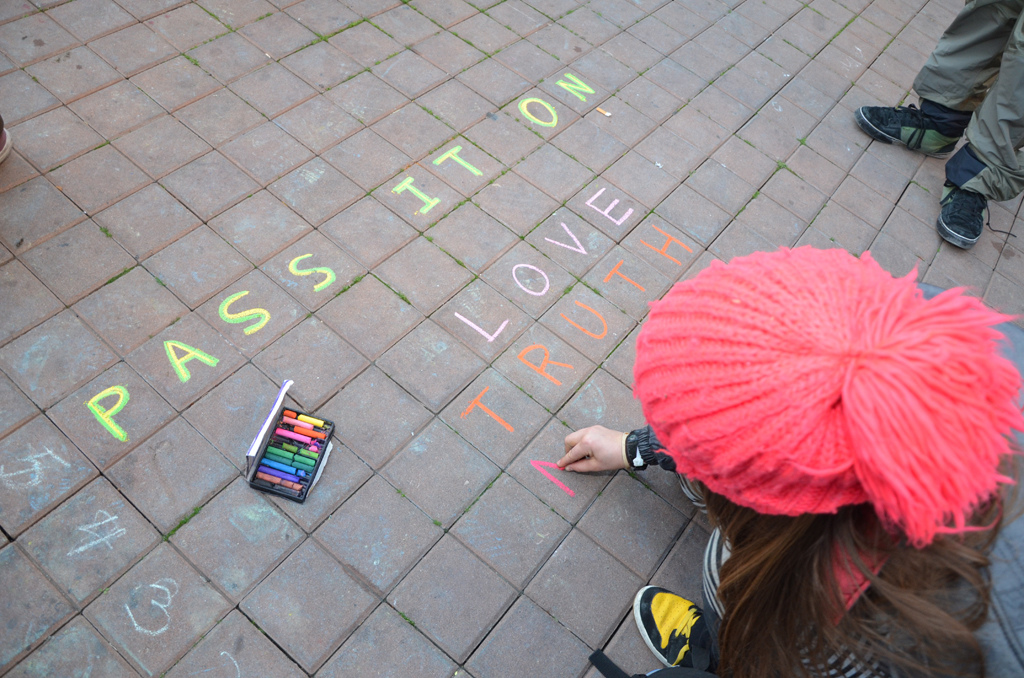 PASS IT ON
LOVE
TRUTH